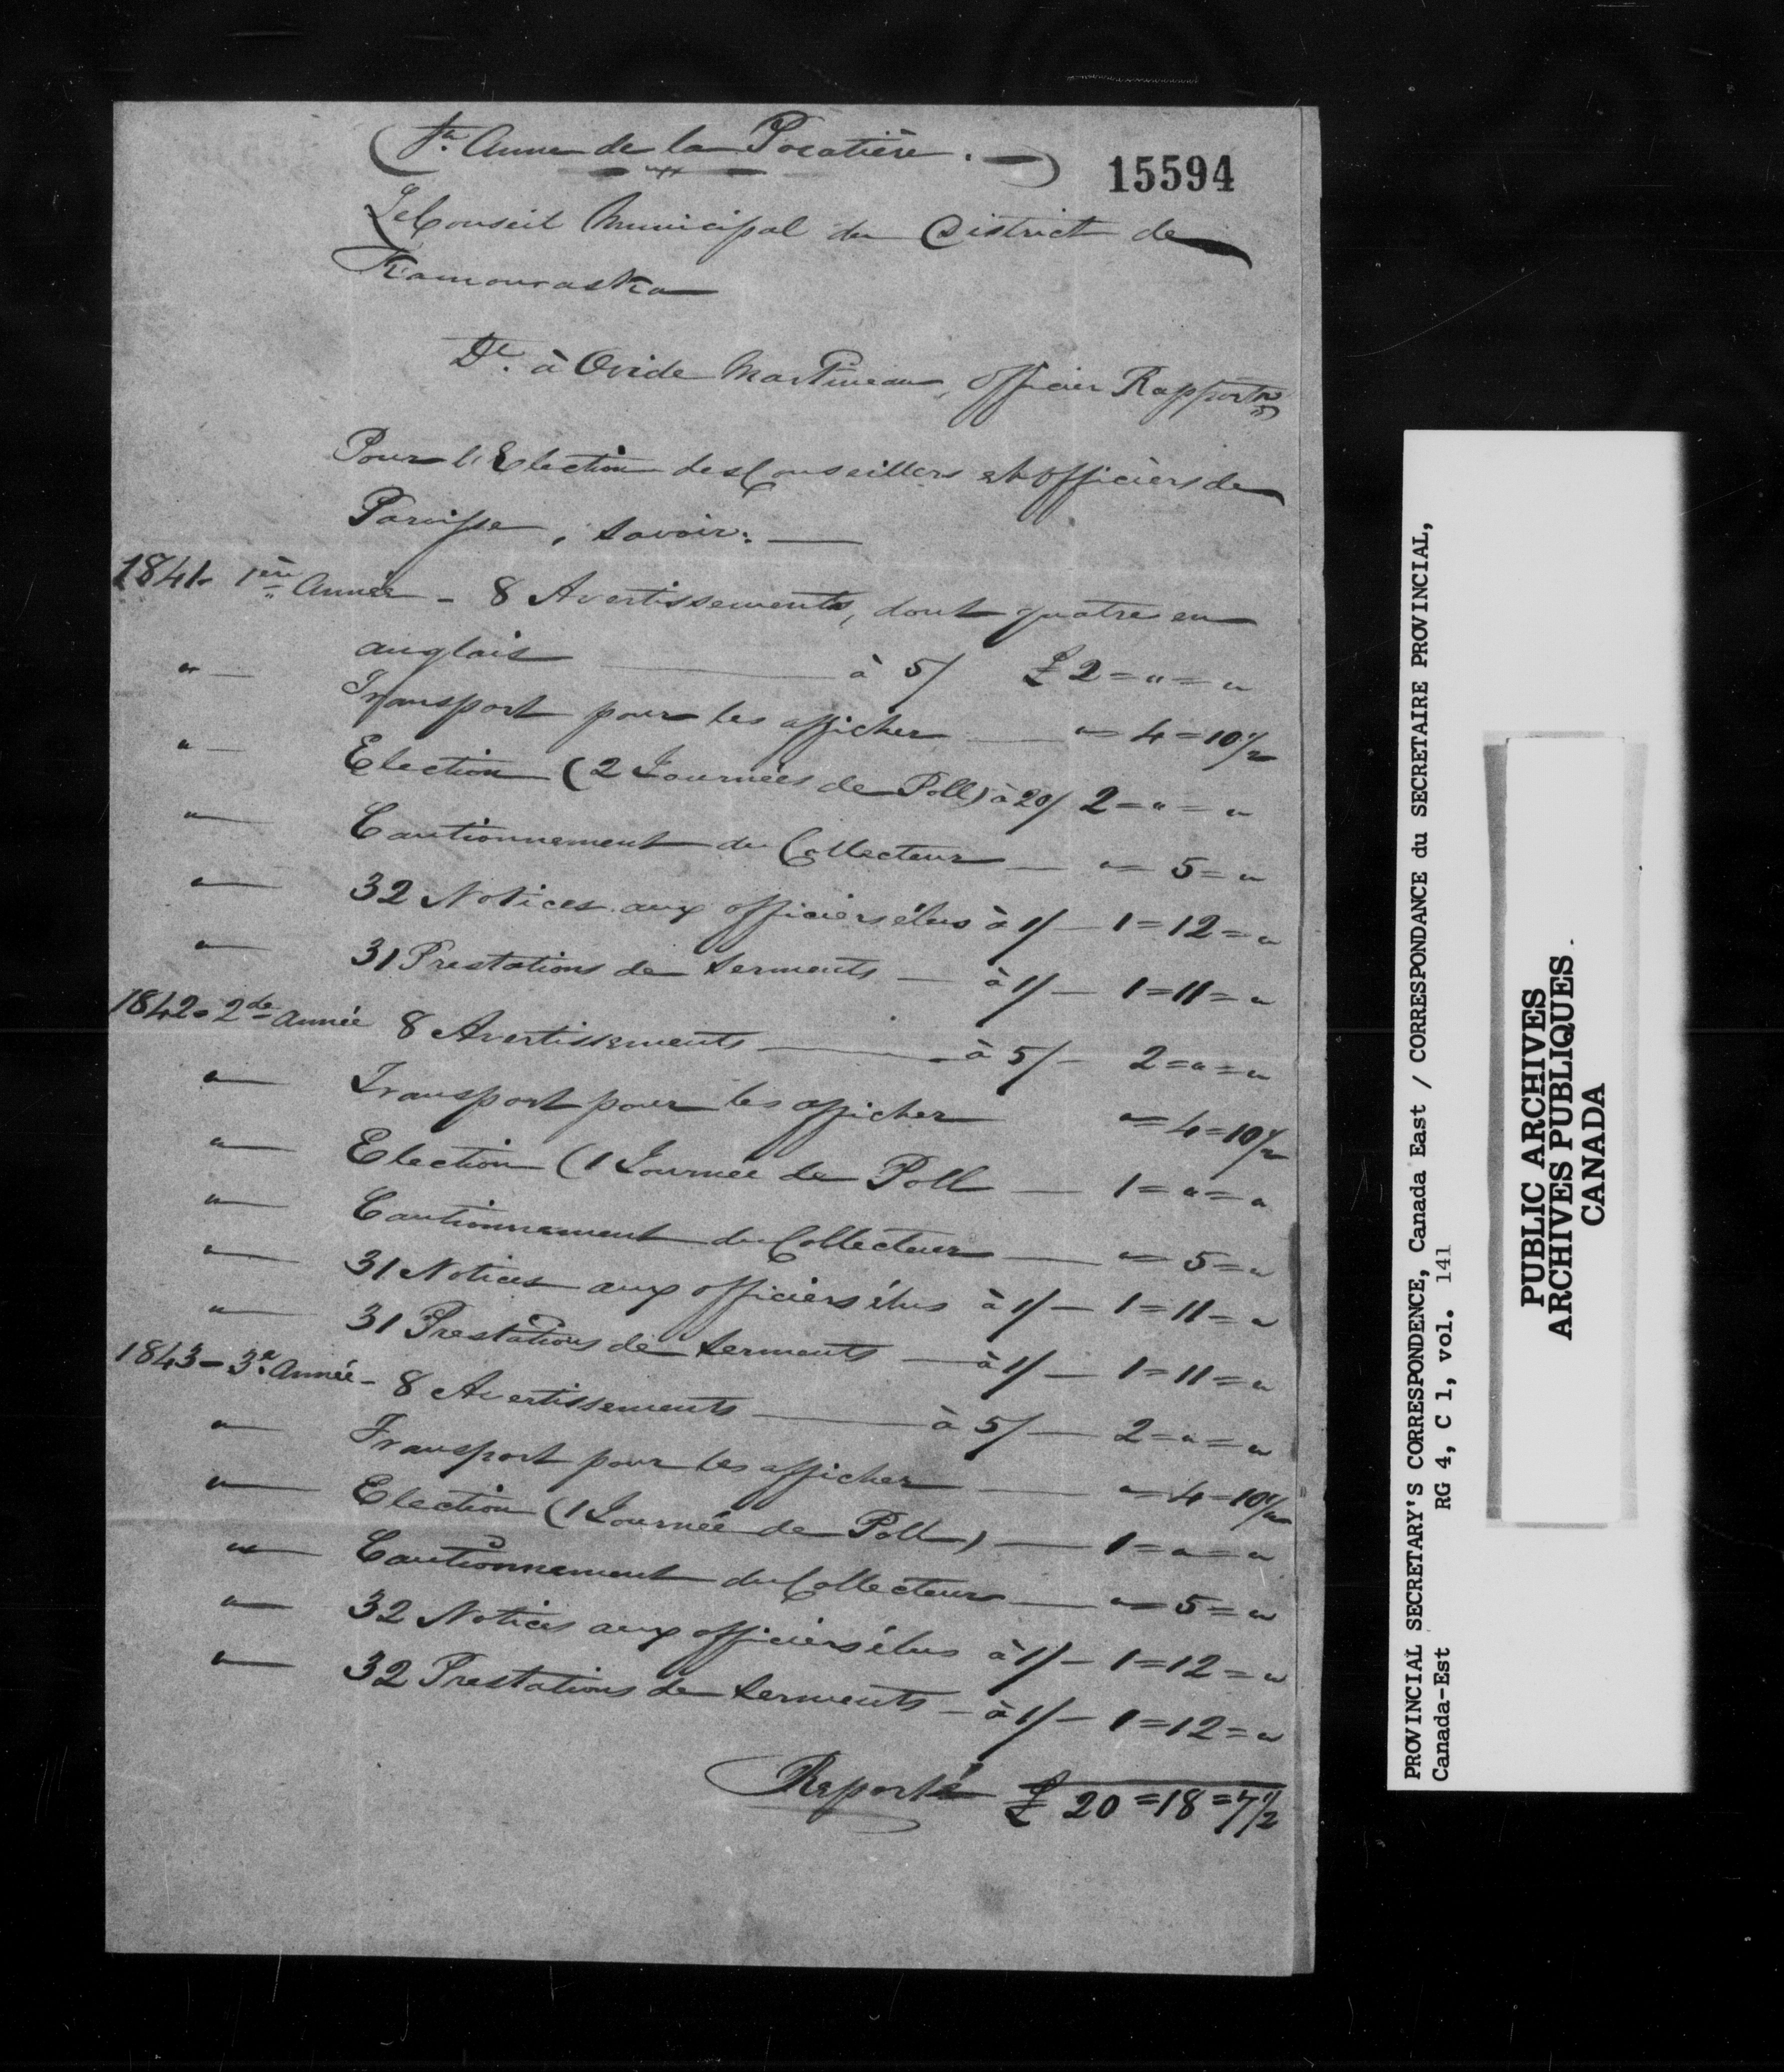 Ste. Anne de la Pocatière. —
15594
Le Conseil Municipal du District de
Kamouraska
De. à Ovide Martineau, officier Rapportr
Pour l'Election des Conseillers et officiers de
Paroisse, savoir: —
1841. 1ère Année - 8 Avertissements, dont quatre en
anglais — à 5/ £ 2 = " = "
" — Transport pour les afficher — " = 4 = 10 1/2
" — Election (2 Journées de Poll) à 20/ 2 = " = "
" — Cautionnement du Collecteur — " = 5 = "
" — 32 Notices aux officiers élus à 1/ — 1 = 12 = "
" — 31 Prestations de serments — à 1/ — 1 = 11 = "
1842 = 2de Année 8 Avertissements — à 5/ — 2 = " = "
" — Transport pour les afficher " = 4 = 10 1/2
" — Election (1 Journée de Poll — 1 = " = "
" — Cautionnement du Collecteur — " = 5 = "
" — 31 Notices aux officiers élus à 1/ — 1 = 11 = "
" — 31 Prestations de serments — à 1/ — 1 = 11 = "
1843 — 3e. Année - 8 Avertissements — à 5/ — 2 = " = "
" — Transport pour les afficher — " = 4 = 10 1/2
" — Election (1 Journée de Poll) — 1 = " = "
" — Cautionnement du Collecteur — " = 5 = "
" — 32 Notices aux officiers élus à 1/ — 1 = 12 = "
" — 32 Prestations de serments — à 1/ — 1 = 12 = "
Reporté £ 20 = 18 = 7 1/2
PROVINCIAL SECRETARY'S CORRESPONDENCE, Canada East / CORRESPONDANCE du SECRETAIRE PROVINCIAL,
Canada-Est RG 4, C 1, vol. 141
PUBLIC ARCHIVES
ARCHIVES PUBLIQUES
CANADA